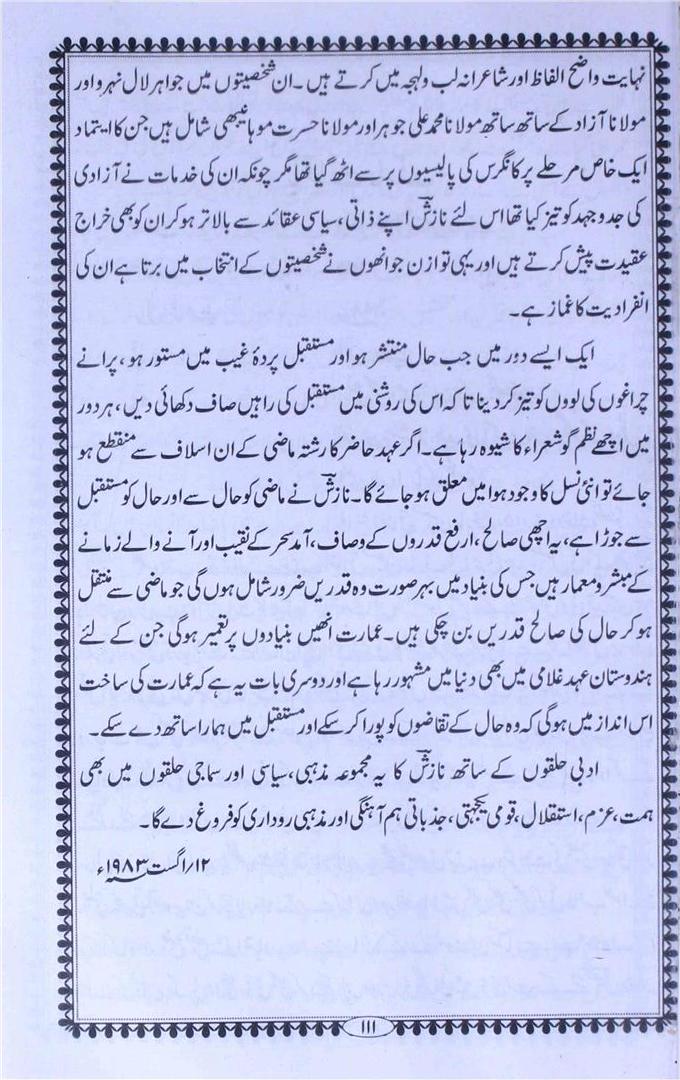 نہایت واضح الفاظ اور شاعرانہ لب ولہجہ میں کرتے ہیں۔ ان شخصیتوں میں جواہر لال نہرو اور
مولانا آزاد کے ساتھ ساتھ مولانا محمد علی جوہر اور مولانا حسرت موہانیبھی شامل ہیں جن کا ایتماد
ایک خاص مرحلے پر کانگرس کی پالیسیوں پر سے اٹھ گیا تھا مگر چونکہ ان کی خدمات نے آزادی
کی جدوجہد کو تیز کیا تھا اس لئے نازشؔ اپنے ذاتی، سیاسی عقائد سے بالاتر ہو کر ان کو بھی خراج
عقیدت پیش کرتے ہیں اور یہی توازن جو انھوں نے شخصیتوں کے انتخاب میں برتا ہے ان کی
انفرادیت کا غماز ہے۔
ایک ایسے دور میں جب حال منتشر ہو اور مستقبل پردۂ غیب میں مستور ہو، پرانے
چراغوں کی لووں کو تیز کر دینا تاکہ اس کی روشنی میں مستقبل کی راہیں صاف دکھائی دیں، ہر دور
میں اچھے نظم گو شعراء کا شیوہ رہا ہے۔ اگر عہد حاضر کا رشتہ ماضی کے ان اسلاف سے منقطع ہو
جائے تو انئی نسل کا وجود ہوا میں معلق ہو جائے گا۔ نازشؔ نے ماضی کو حال سے اور حال کو مستقبل
سے جوڑا ہے، یہ اچھی صالح، ارفع قدروں کے وصاف، آمد سحر کے نقیب اور آنے والے زمانے
کے مبشر و معمار ہیں جس کی بنیاد میں بہر صورت وہ قدریں ضرور شامل ہوں گی جو ماضی سے منتقل
ہو کر حال کی صالح قدریں بن چکی ہیں۔ عمارت انھیں بنیادوں پر تعمیر ہوگی جن کے لئے
ہندوستان عہد غلامی میں بھی دنیا میں مشہور رہا ہے اور دوسری بات یہ ہے کہ عمارت کی ساخت
اس انداز میں ہوگی کہ وہ حال کے تقاضوں کو پورا کر سکے اور مستقبل میں ہمارا ساتھ دے سکے۔
ادبی حلقوں کے ساتھ نازشؔ کا یہ مجموعہ مذہبی، سیاسی اور سماجی حلقوں میں بھی
ہمت، عزم، استقلال، قومی یکجہتی، جذباتی ہم آہنگی اور مذہبی روداری کو فروغ دے گا۔
۱۲/اگست ۱۹۸۳ء
۱۱۱